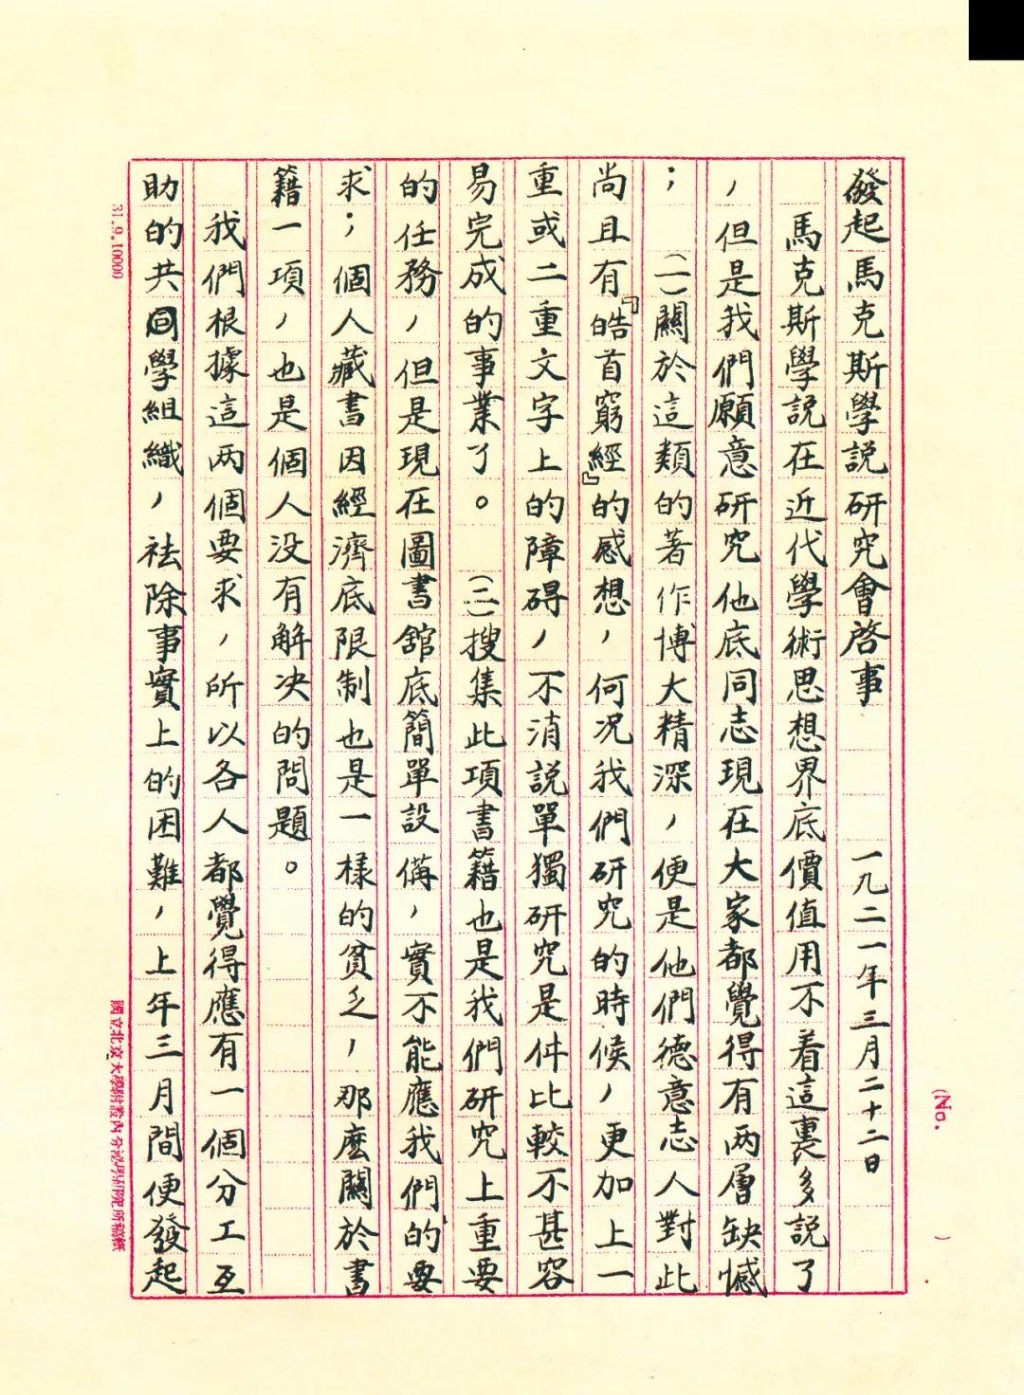 發起馬克斯學説研究會啓事 一九二一年三月二十二日
馬克斯學説在近代學術思想界底價值用不着這裏多説了
，但是我們願意研究他底同志現在大家都覺得有两層缺憾
； (一)關於這類的著作博大精深，便是他們德意志人對此
尚且有『皓首窮經』的感想，何况我們研究的時候，更加上一
重或二重文字上的障碍，不消説單獨研究是件比較不甚容
易完成的事業了。 (二)搜集此項書籍也是我們研究上重要
的任務，但是現在圖書舘底簡單設俻，實不能應我們的要
求；個人藏書因經濟底限制也是一樣的貧乏，那麽關於書
籍一項，也是個人没有解决的問題。
我們根據這两個要求，所以各人都覺得應有一個分工互
助的共同學組織，祛除事實上的困難，上年三月間便發起
(No. )
31.9.10000
國立北京大學附設內分泌學研究所稿紙